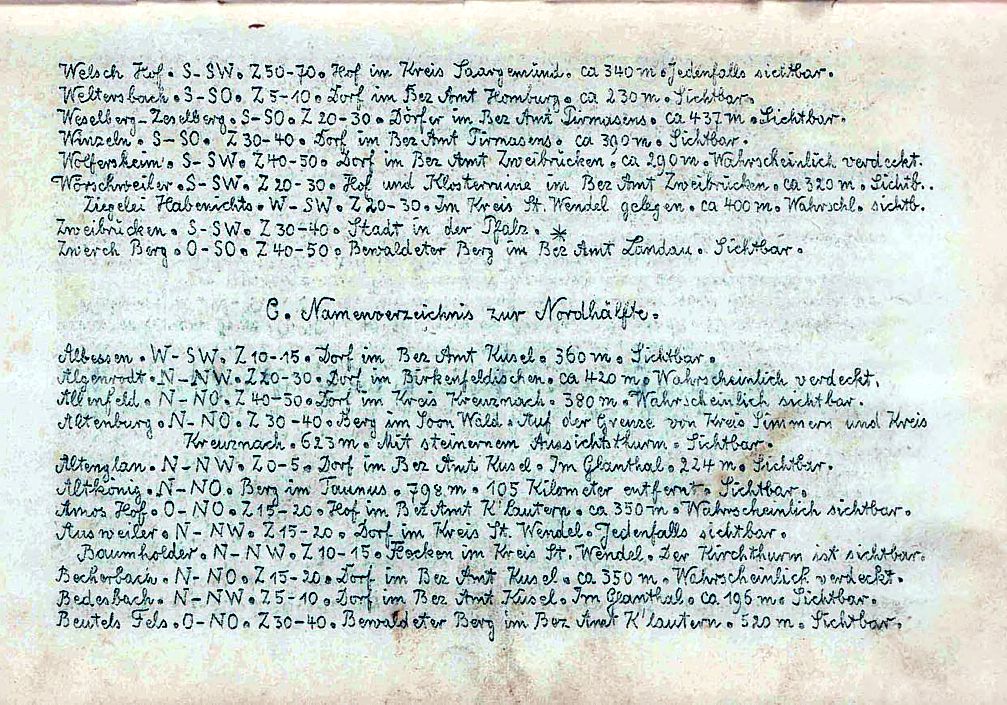 Welsch Hof. S-SW. Z 50-70. Hof im Kreis Saargemünd. ca 340 m. Jedenfalls sichtbar.
Weltersbach. S-SO. Z 5-10. Dorf im Bez Amt Homburg. ca 230 m. Sichtbar.
Weselberg-Zeselberg. S-SO. Z 20-30. Dörfer im Bez Amt Pirmasens. ca 437 m. Sichtbar.
Winzeln. S-SO. Z 30-40. Dorf im Bez Amt Pirmasens. ca 390 m. Sichtbar.
Wolfersheim. S-SW. Z 40-50. Dorf im Bez Amt Zweibrücken. ca 290 m. Wahrscheinlich verdeckt.
Wörschweiler. S-SW. Z 20-30. Hof und Klosterruine im Bez Amt Zweibrücken. ca 320 m. Sichtb..
Ziegelei Habenichts. W-SW. Z 20-30. Im Kreis St. Wendel gelegen. ca 400 m. Wahrschl. sichtb.
Zweibrücken. S-SW. Z 30-40. Stadt in der Pfalz. *
Zwerch Berg. O-SO. Z 40-50. Bewaldeter Berg im Bez Amt Landau. Sichtbar.
C. Namenverzeichnis zur Nordhälfte.
Albessen. W-SW. Z 10-15. Dorf im Bez Amt Kusel. 360 m. Sichtbar.
Algenrodt. N-NW. Z 20-30. Dorf im Birkenfeldischen. ca 420 m. Wahrscheinlich verdeckt.
Allenfeld. N-NO. Z 40-50. Dorf im Kreis Kreuznach. 380 m. Wahrscheinlich sichtbar.
Altenburg. N-NO. Z 30-40. Berg im Soon Wald. Auf der Grenze von Kreis Simmern und Kreis
Kreuznach. 623 m. Mit steinernem Aussichtsthurm. Sichtbar.
Altenglan. N-NW. Z 0-5. Dorf im Bez Amt Kusel. Im Glanthal. 224 m. Sichtbar.
Altkönig. N-NO. Berg im Taunus. 798 m. 105 Kilometer entfernt. Sichtbar.
Amos Hof. O-NO. Z 15-20. Hof im Bez Amt K'lautern. ca 350 m. Wahrscheinlich sichtbar.
Ausweiler. N-NW. Z 15-20. Dorf im Kreis St. Wendel. Jedenfalls sichtbar.
Baumholder. N-NW. Z 10-15. Flecken im Kreis St. Wendel. Der Kirchthurm ist sichtbar.
Becherbach. N-NO. Z 15-20. Dorf im Bez Amt Kusel. ca 350 m. Wahrscheinlich verdeckt.
Bedesbach. N-NW. Z 5-10. Dorf im Bez Amt Kusel. Im Glanthal. ca 196 m. Sichtbar.
Beutels Fels. O-NO. Z 30-40. Bewaldeter Berg im Bez Amt K'lautern. 520 m. Sichtbar.